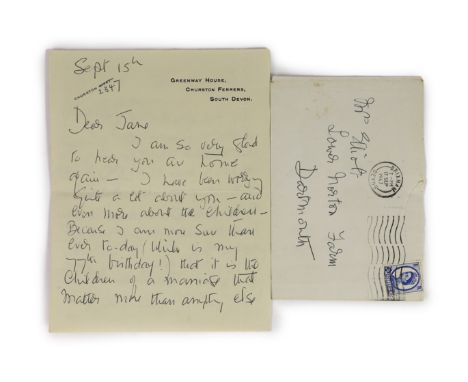 Sept 15th
CHURSTON
2847
GREENWAY HOUSE,
CHURSTON FERRERS,
SOUTH DEVON.
Dear Jane
I am so very glad
to hear you are home
again — I have been worrying
quite a lot about you — and
even more about the children —
Because I am more sure than
ever to-day (which is my
birthday!) that it is the
Children of a marriage that
matter more than anything else
Mrs Elliot
Lower Norton Farm
Dartmouth